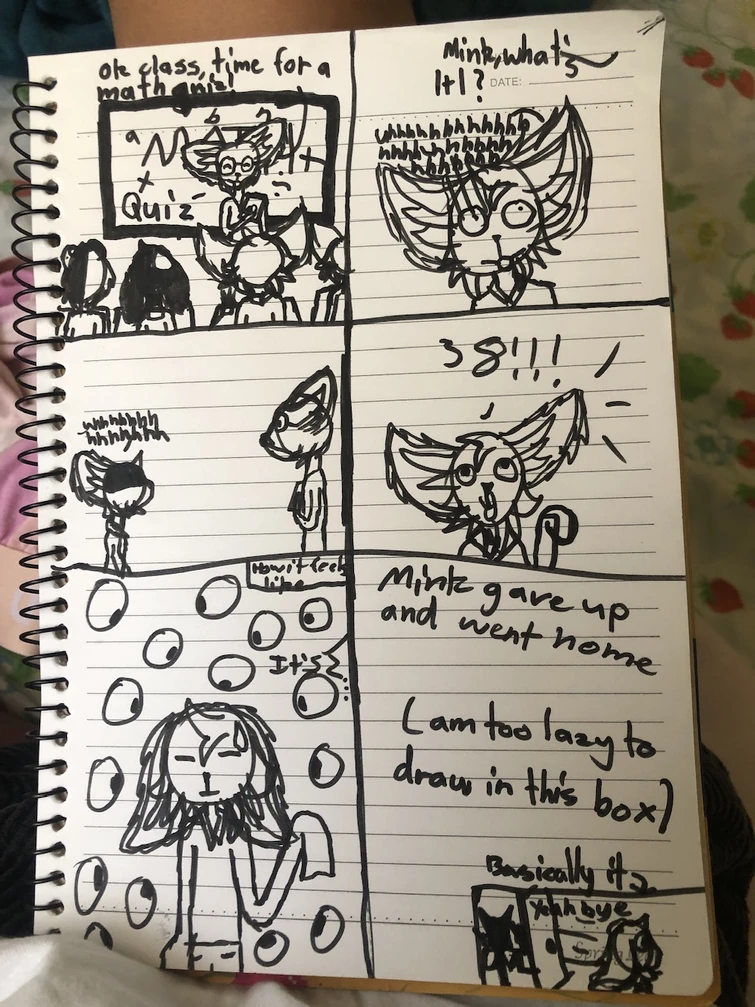 ok class, time for a
math quiz!
a
b
x
Quiz
Mink, what's
1+1?
DATE:
uhhhhhhhhhhhhh
hhhhhhhhhhhh
hhhhhhhh
uhhhhhhh
hhhhhhhh
38!!!
How it feels
like
It's 2
Mink gave up
and went home
(am too lazy to
draw in this box)
Basically it
Yeah bye